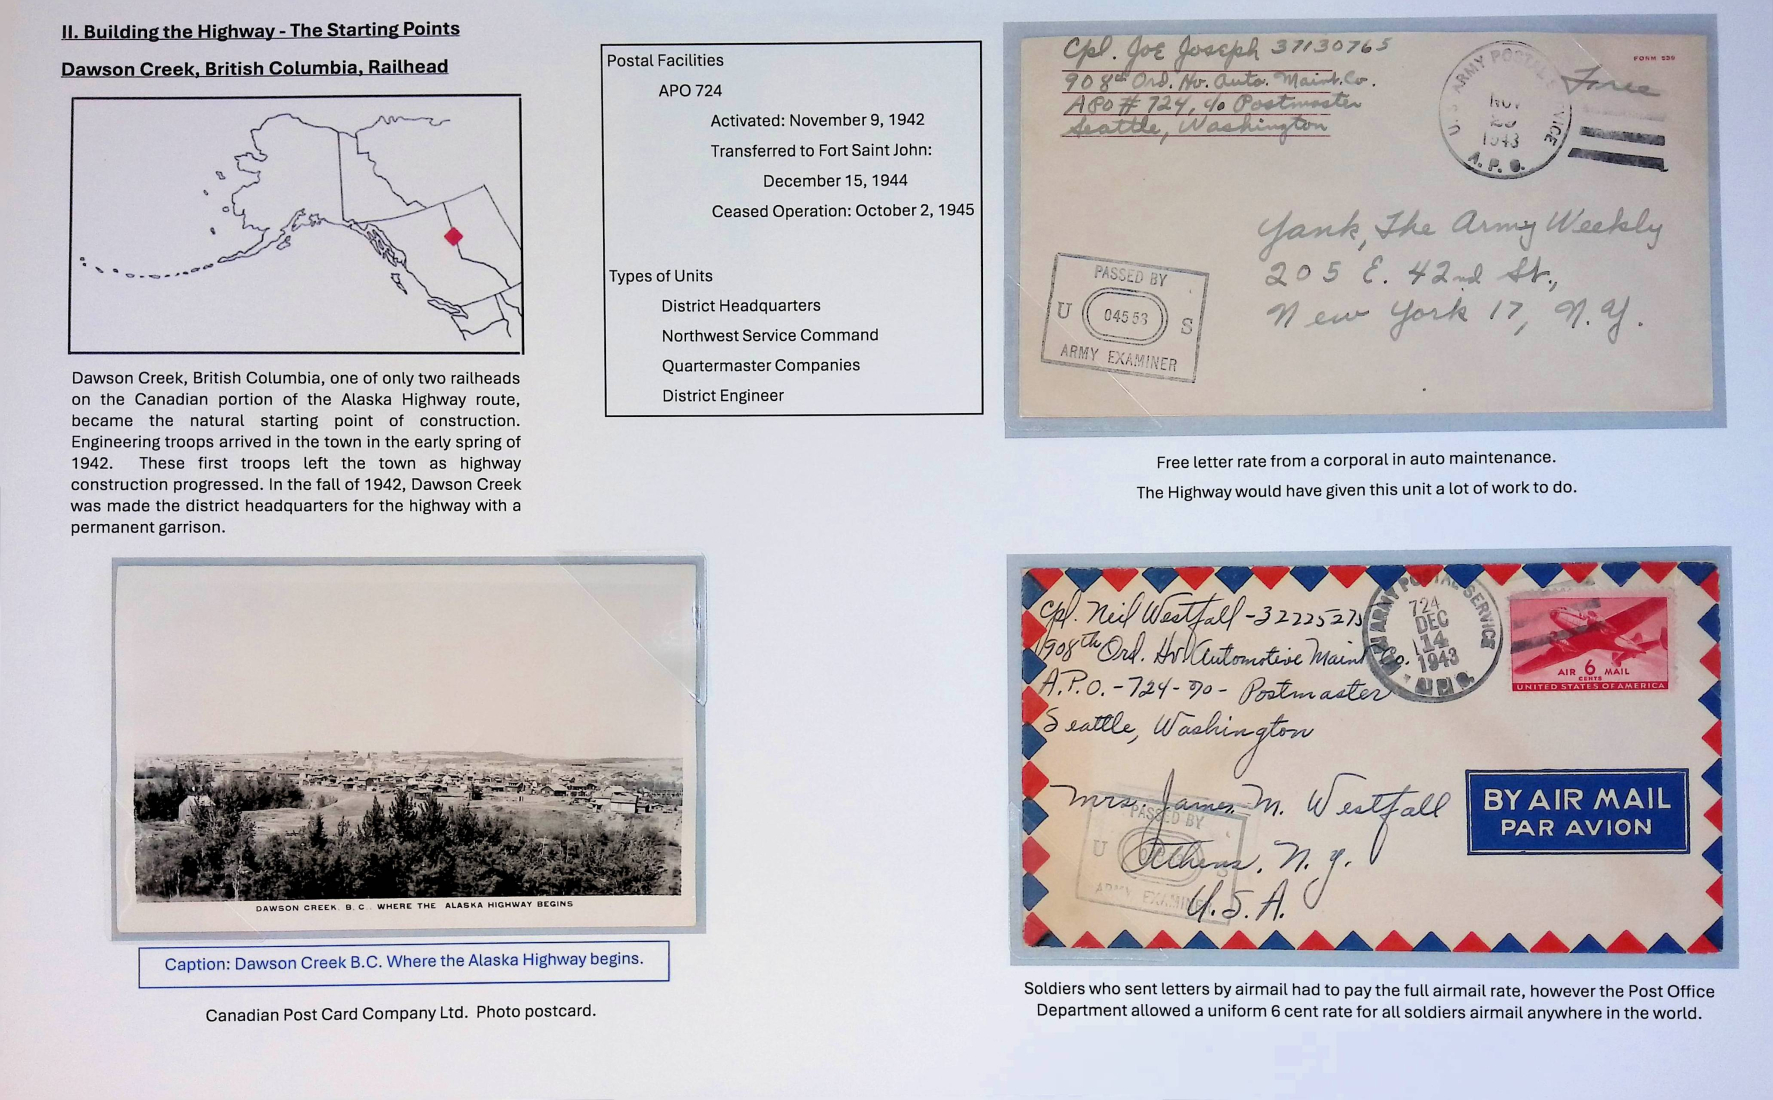 II. Building the Highway - The Starting Points
Dawson Creek, British Columbia, Railhead
Dawson Creek, British Columbia, one of only two railheads
on the Canadian portion of the Alaska Highway route,
became the natural starting point of construction.
Engineering troops arrived in the town in the early spring of
1942. These first troops left the town as highway
construction progressed. In the fall of 1942, Dawson Creek
was made the district headquarters for the highway with a
permanent garrison.
DAWSON CREEK. B. C. WHERE THE ALASKA HIGHWAY BEGINS
Caption: Dawson Creek B.C. Where the Alaska Highway begins.
Canadian Post Card Company Ltd. Photo postcard.
Postal Facilities
APO 724
Activated: November 9, 1942
Transferred to Fort Saint John:
December 15, 1944
Ceased Operation: October 2, 1945
Types of Units
District Headquarters
Northwest Service Command
Quartermaster Companies
District Engineer
Cpl. Joe Joseph 37130765
908th Ord. Hv. Auto. Maint. Co.
APO # 724, c/o Postmaster
Seattle, Washington
U.S. ARMY POSTAL SERVICE
NOV
1943
A. P. O.
Free
Yank, The Army Weekly
205 E. 42nd St.,
New York 17, N.Y.
PASSED BY
U 04553 S
ARMY EXAMINER
Free letter rate from a corporal in auto maintenance.
The Highway would have given this unit a lot of work to do.
Cpl. Neil Westfall - 32225275
908th Ord. Hv. Automotive Maint Co.
A.P.O. - 724 - c/o - Postmaster
Seattle, Washington
ARMY POSTAL SERVICE
724
DEC
14
1943
AIR 6 MAIL
CENTS
UNITED STATES OF AMERICA
Mrs. James M. Westfall
Athens, N.Y.
U.S.A.
PASSED BY
U S
ARMY EXAMINER
BY AIR MAIL
PAR AVION
Soldiers who sent letters by airmail had to pay the full airmail rate, however the Post Office
Department allowed a uniform 6 cent rate for all soldiers airmail anywhere in the world.